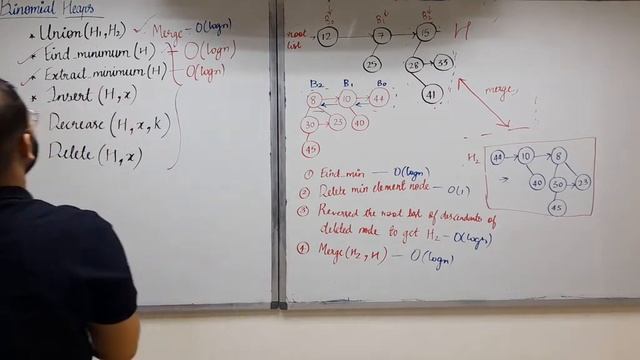 Binomial Heaps
* Union (H1, H2) Merge - O(logn)
* Find_minimum (H) - O(logn)
* Extract_minimum (H) - O(logn)
* Insert (H, x)
Decrease (H, x, k)
Delete (H, x)
root list 12 7 15 H
B1
25 28 33
41
merge
B2 B1 B0
8 10 44
30 23 40
45
H2 44 10 8
40 30 23
45
① Find_min — O(logn)
② Delete min element node — O(1)
③ Reversed the root list of descendants of
deleted node to get H2 - O(logn)
④ Merge (H2, H) — O(logn)